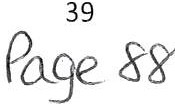 39
Page 88